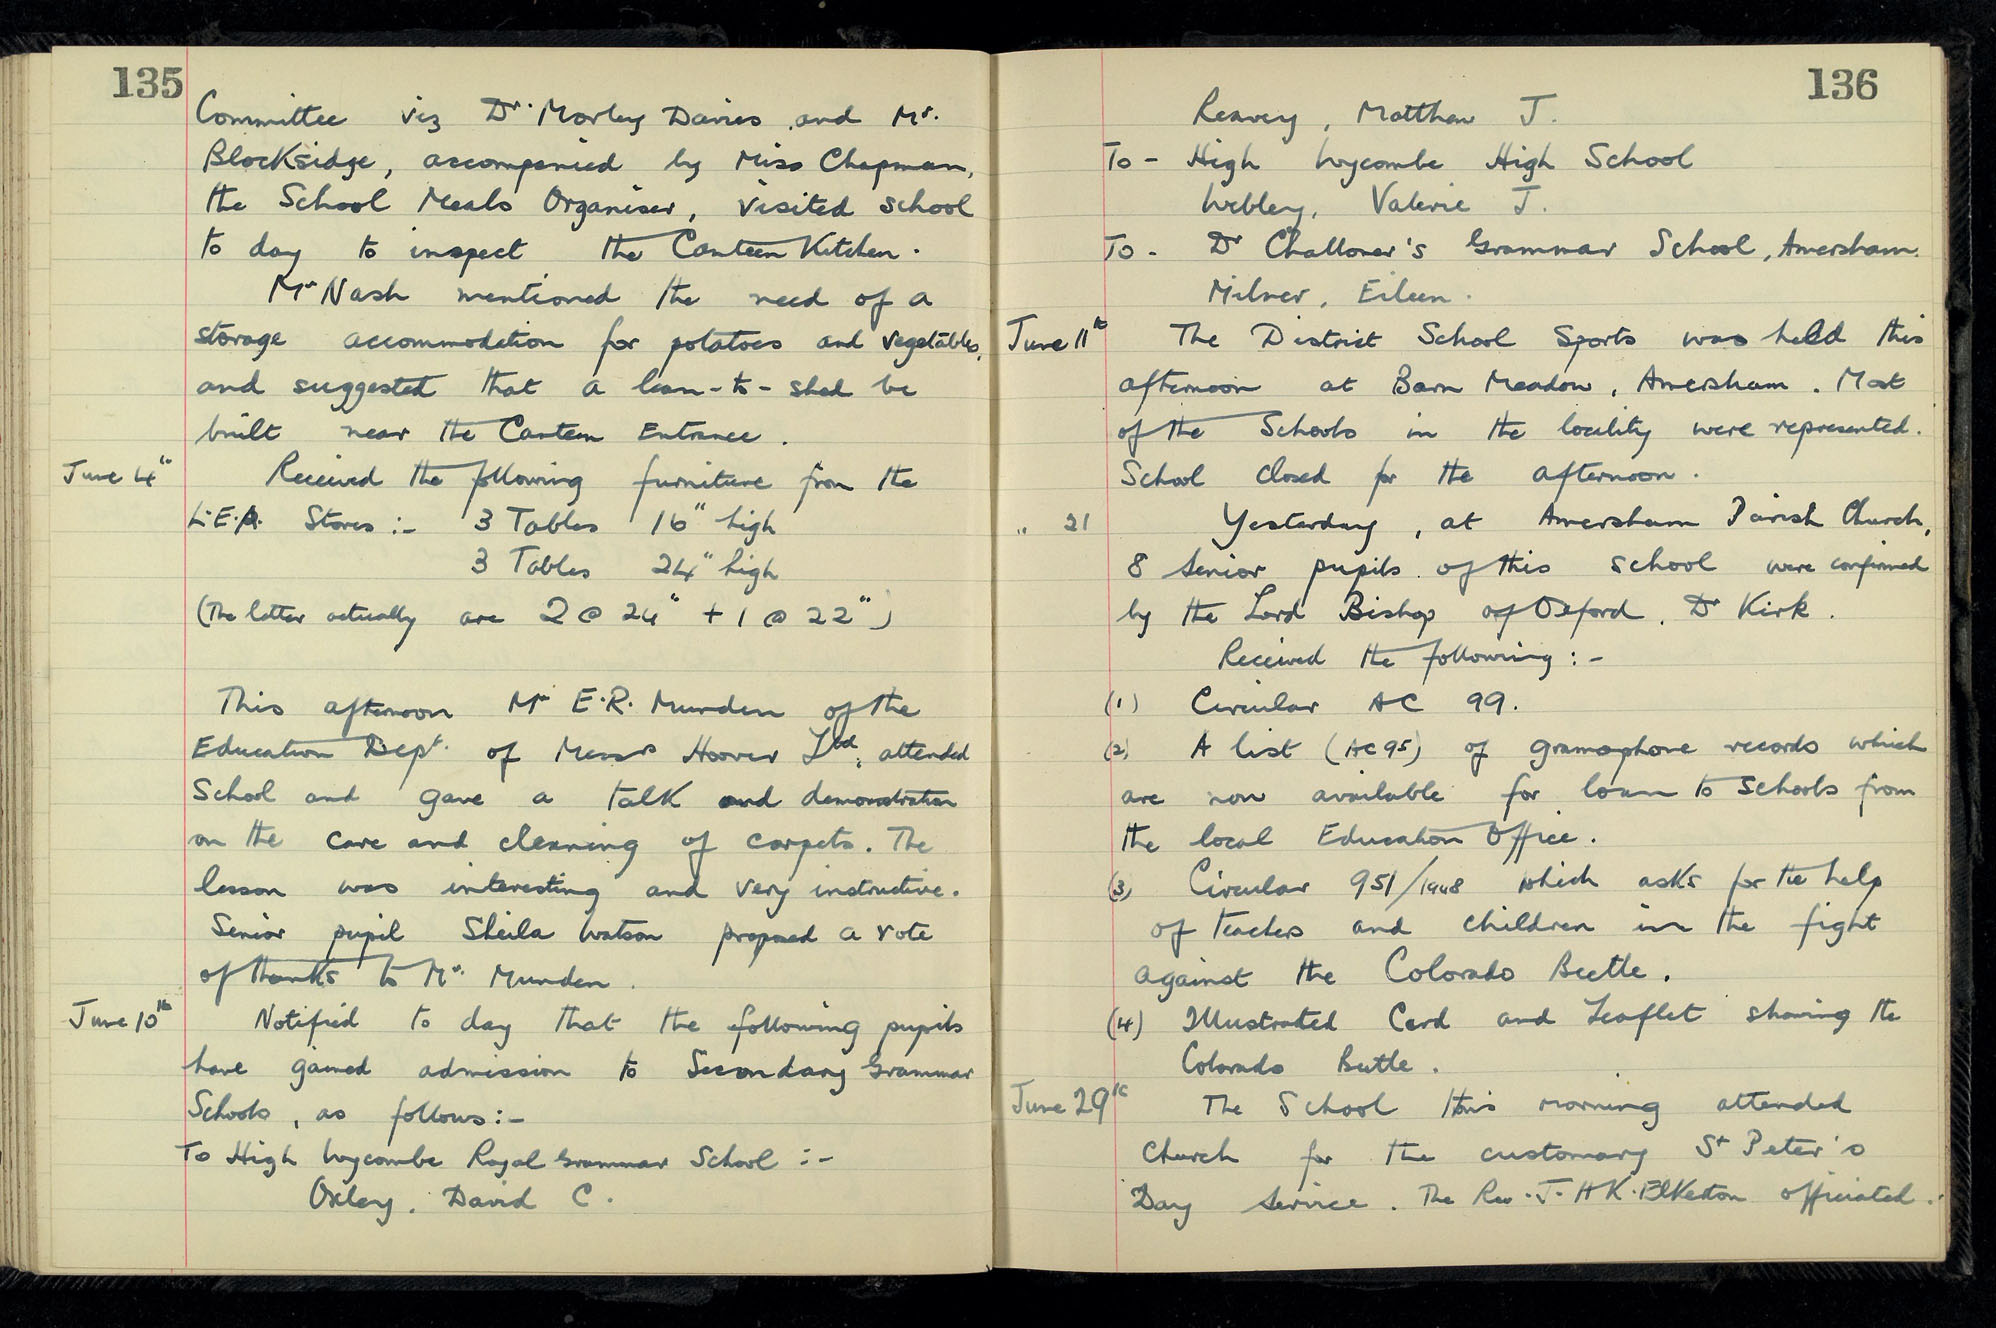 135
Committee viz Dr. Morley Davies and Mr.
Blocksidge, accompanied by Miss Chapman,
the School Meals Organiser, visited school
to day to inspect the Canteen Kitchen.
Mr Nash mentioned the need of a
storage accommodation for potatoes and vegetables,
and suggested that a lean-to-shed be
built near the Canteen Entrance.
June 4th Received the following furniture from the
L.E.A. Stores :- 3 Tables 16" high
3 Tables 24" high
(The latter actually are 2 @ 24" + 1 @ 22")
This afternoon Mr E.R. Munden of the
Education Dept. of Messrs Hoover Ltd, attended
School and gave a talk and demonstration
on the care and cleaning of carpets. The
lesson was interesting and very instructive.
Senior pupil Sheila Watson proposed a vote
of thanks to Mr. Munden.
June 10th Notified to day that the following pupils
have gained admission to Secondary Grammar
Schools, as follows:-
To High Wycombe Royal Grammar School :-
Oxley, David C.
136
Reavey, Matthew J.
To - High Wycombe High School
Webley, Valerie J.
To - Dr Challoner's Grammar School, Amersham.
Milner, Eileen.
June 11th The District School Sports was held this
afternoon at Barn Meadow, Amersham. Most
of the Schools in the locality were represented.
School closed for the afternoon.
" 21 Yesterday, at Amersham Parish Church,
8 senior pupils of this school were confirmed
by the Lord Bishop of Oxford, Dr Kirk.
Received the following :-
(1) Circular AC 99.
(2) A list (AC95) of gramophone records which
are now available for loan to schools from
the local Education Office.
(3) Circular 951/1948 which asks for the help
of teachers and children in the fight
against the Colorado Beetle.
(4) Illustrated Card and Leaflet showing the
Colorado Beetle.
June 29th The School this morning attended
Church for the customary St Peter's
Day Service. The Rev. J. H K. Elkerton officiated.